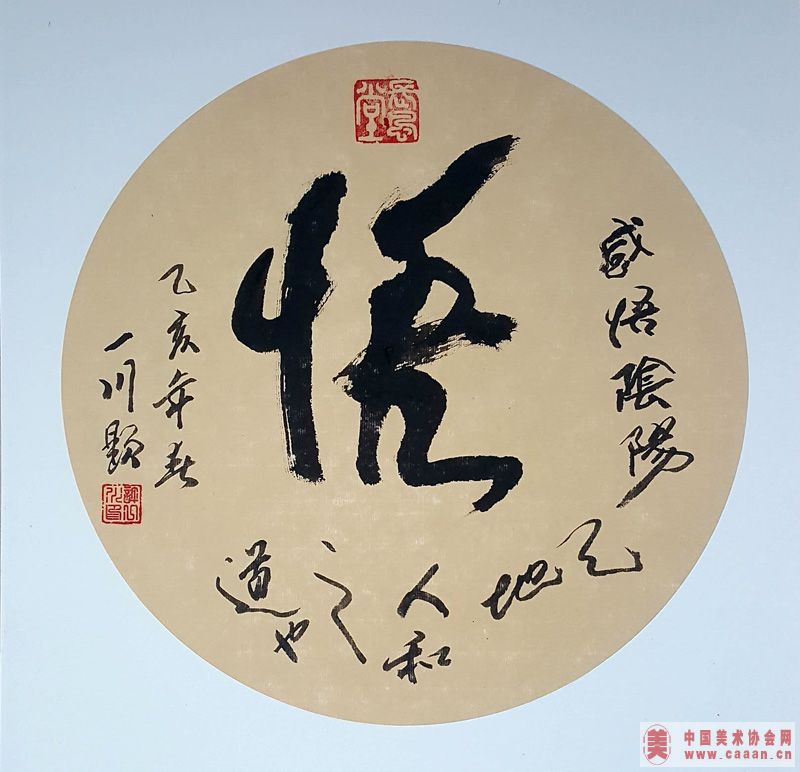 悟
感悟陰陽
天地
人和
之
道也
乙亥年春
一川題
中国美术协会网
www.caaan.cn